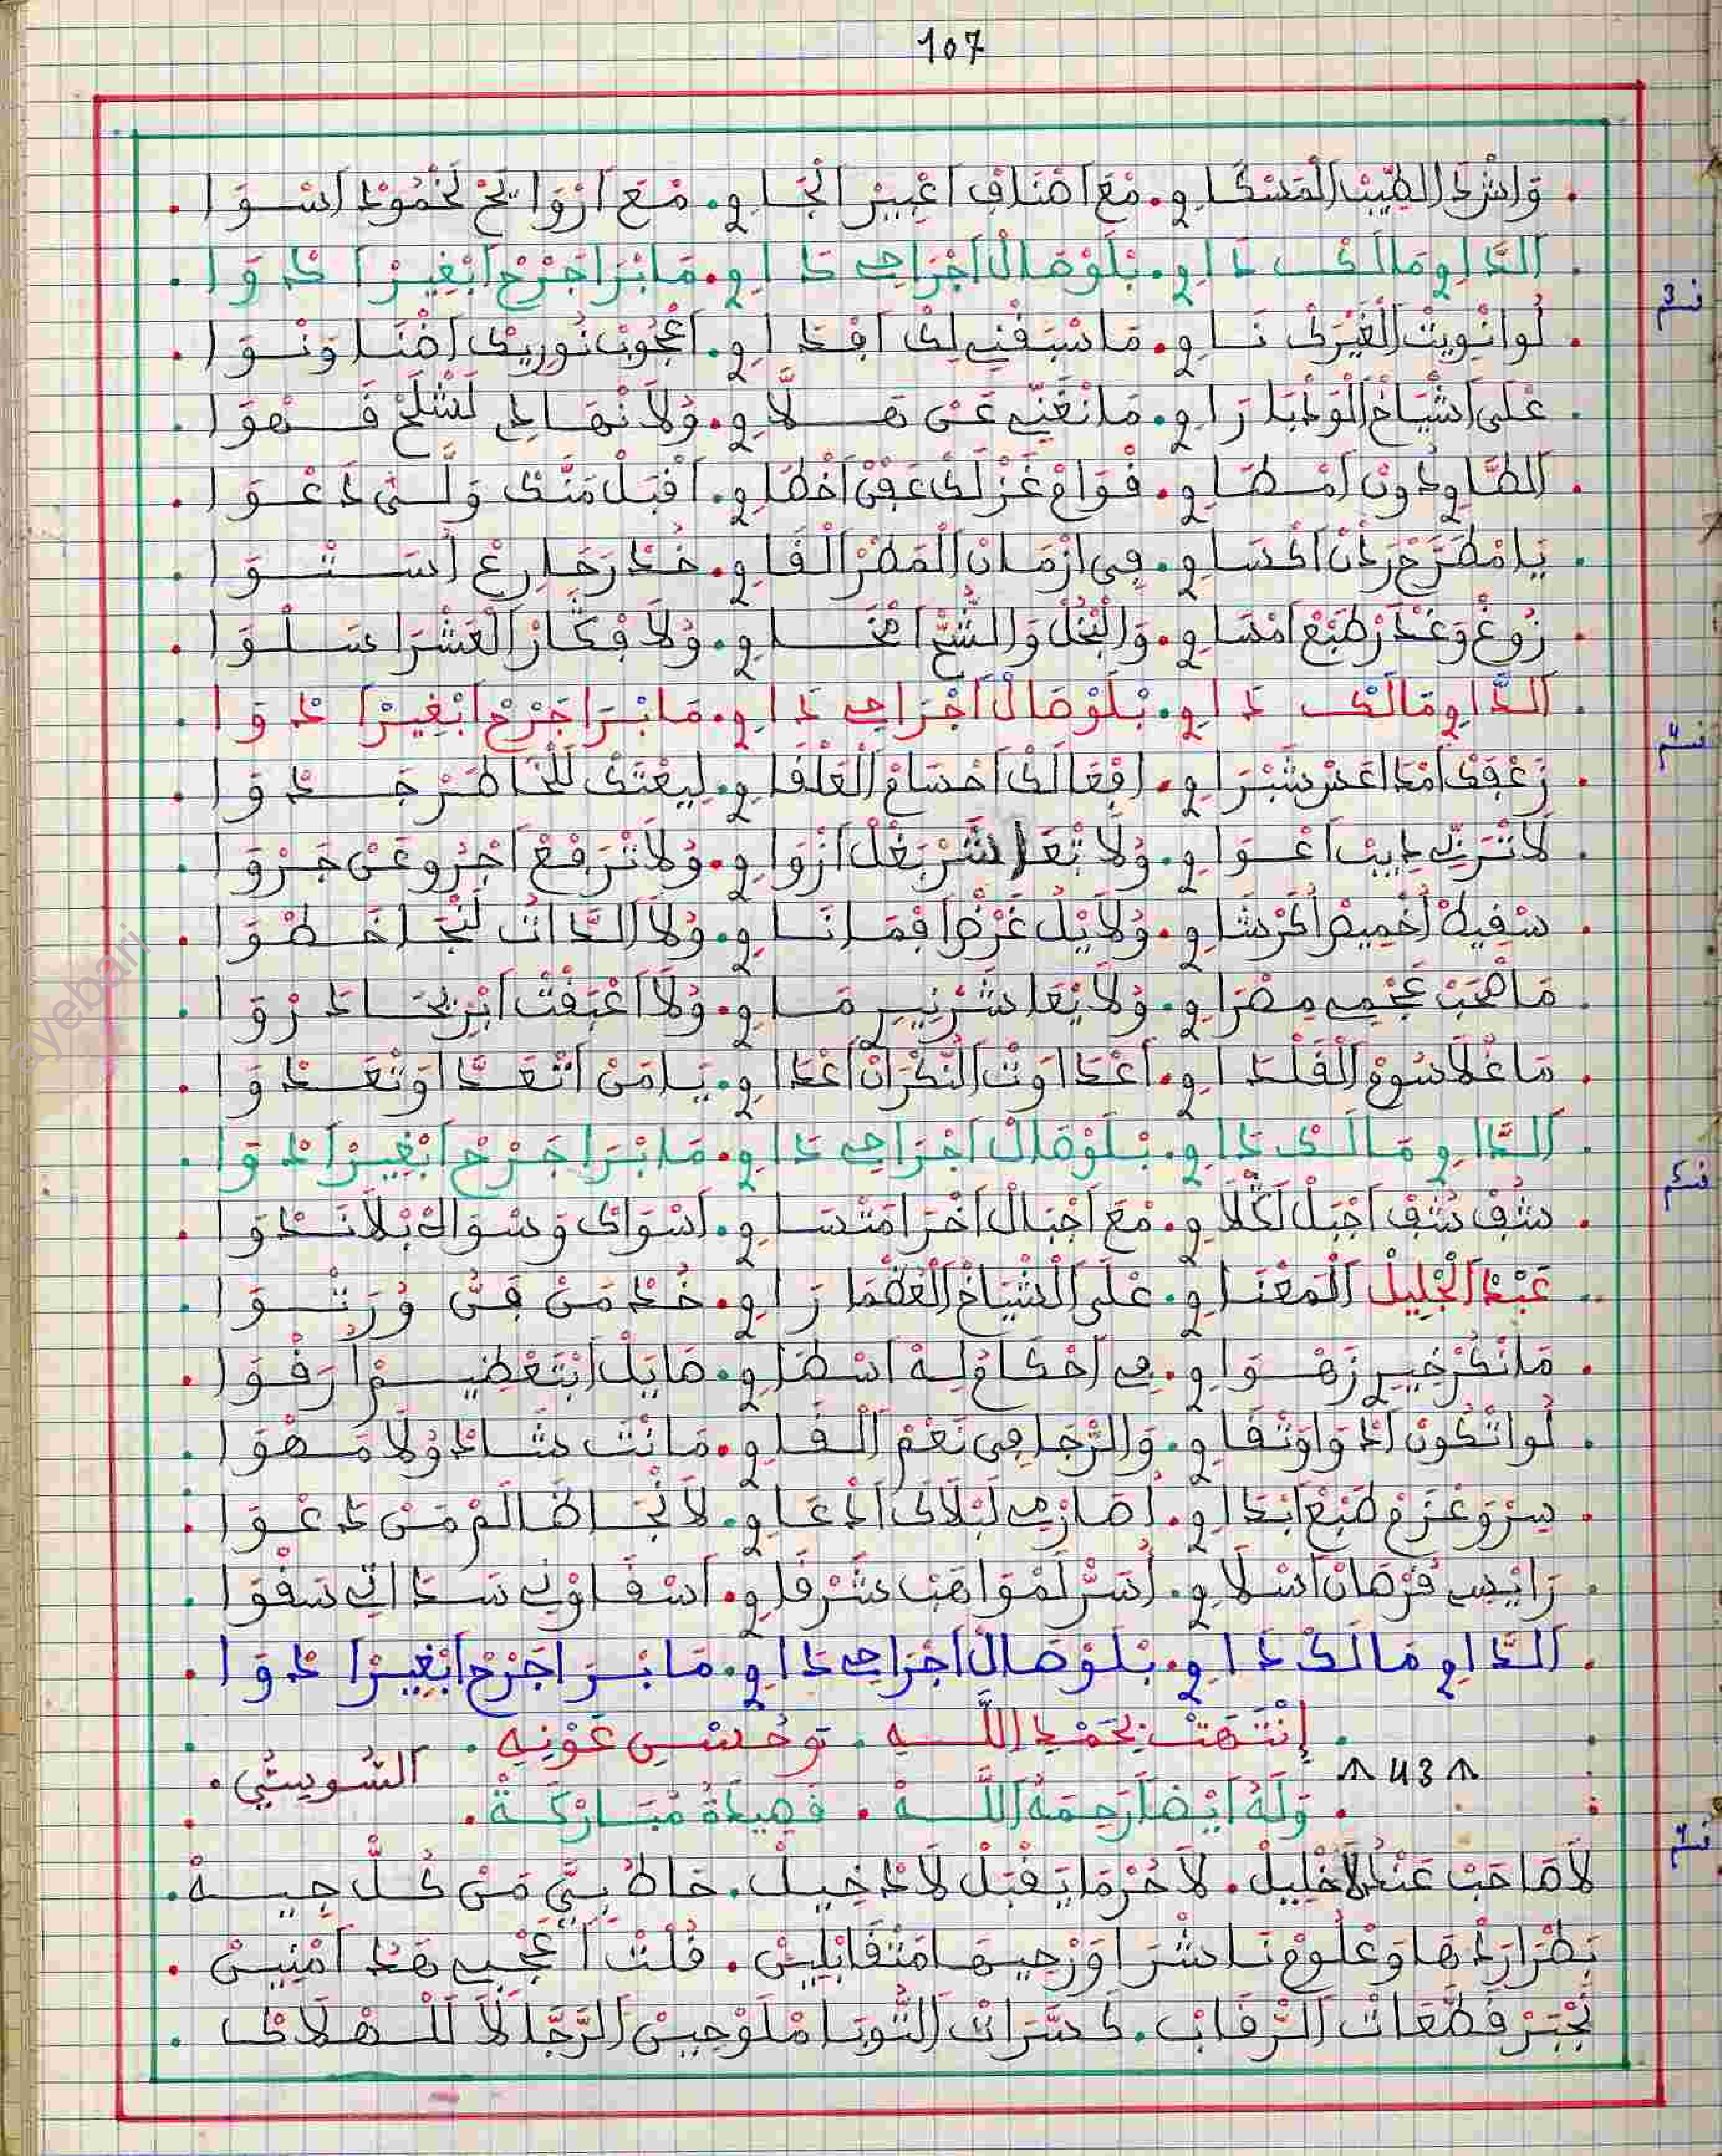 107
. وَاشْرَدْ الطِّيبْ الْمَسْكَاوِي. مْعَ اصْنَافْ اعْبِيرْ انْجَاوِي. مْعَ ارْوَايَحْ لَخْمُودْ اسْوَا .
. الدَّاوِي مَالَكْ دَاوِي. بْلَوْصَالْ اجْرَاحِي دَاوِي. مَا بْرَا جَرْحْ ابْغِيرْ ادْوَا .
ق 3م
. لُو انْوِيتْ الْغَيْرَكْ نَاوِي. مَا نَسْقْنِي لِكْ افْدَاوِي. اعْجُوبْ نُورِيكْ اضْنَا وَنْوَا .
. عْلَى اشْيَاخْ الْوَدْبَا رَاوِي. مَا نْغَنِّي عَنْ هَلَّاوِي. وُلَا نْهَادِي لَشْلَحْ قَهْوَا .
. الطَّاوِي دُونْ امْطَاوِي. قْوَامْ غَزْلَكْ عَقْنْ اخْطَاوِي. اقْبَلْ مَنَّكْ وَلَّى دَعْوَا .
. يَا مْطَرَّحْ رَدْنْ اكْسَاوِي. فِي ازْمَانْ الْمَطْرْ الْقَاوِي. خُدْ رَحَا رِعْ اسْتْوَا .
. زُوغْ وَغْدَرْ طَبْعْ امْسَاوِي. وَالْبُخْلْ وَالشُّحّْ اسْخَاوِي. وُلَا فْكَّارْ الْعَشْرَا سَلْوَا .
. الدَّاوِي مَالَكْ دَاوِي. بْلَوْصَالْ اجْرَاحِي دَاوِي. مَا بْرَا جَرْحْ ابْغِيرْ ادْوَا .
ق 4م
. زَعْقَكْ امْدَاعَسْ شَبْرَاوِي. افْعَالَكْ احْسَامْ الْعَلْفَاوِي. لِيعْتَكْ لَلْخَاطَرْ جَدْوَا .
. لَا تْرَبِّي دِيبْ اعْوَاوِي. وُلَا تْعَاشَرْ بَغْلْ ازْوَاوِي. وُلَا تْرَفْعْ اجْرُو عَنْ جَرْوَا .
. سْفِيهْ اخْمِيصْ اكْرْشَاوِي. وُلَا يْلْ غَرْضْ افْمَانَاوِي. وُلَا الدَّاتْ لَنْجَا خَطْوَا .
. مَا صْحَبْ عَجْمِي مِصْرَاوِي. وُلَا يْعَاشَرْ نِيرْمَاوِي. وُلَا اعْبَقْتْ ابْرِيحَا دَرْوَا .
. مَا غْلَا سُومْ الْقَلْدَاوِي. اعْدَاوْتْ النَّكْرَانْ اعْدَاوِي. يَا مَنْ اتْعَدَّا وَتْعَدْوَا .
. الدَّاوِي مَالَكْ دَاوِي. بْلَوْصَالْ اجْرَاحِي دَاوِي. مَا بْرَا جَرْحْ ابْغِيرْ ادْوَا .
ق 5م
. شُفْ شُفْ اجْبَلْ لَكْلَاوِي. مْعَ اجْبَالْ اخْرَا مَتْسَاوِي. اسْوَاكْ وَسْوَاكْ بْلَا نَدْوَا .
. عَبْدْ الْجْلِيلْ الْمَعْنَاوِي. عْلَى الْشْيَاخْ الْعُظْمَا رَاوِي. خُدْ مَنْ فَنُّ وُرَتْوَا .
. مَا نْكُرْ خِيرْ زَهْوَاوِي. فِي احْكَامْ لِهْ اسْطَاوِي. صَايْلْ ابْتَعْضِيمْ ارَقْوَا .
. لُو اتْكُونْ ادْوَا وَتْقَاوِي. وَالرّْجَا فِي نَعْمْ الْقَاوِي. مَا نْتْ شَادْ وُلَا مَهْوَا .
. سِرْ وَعْزَمْ طَبْعْ ابْدَاوِي. اصَارْمِي لَبْلَاكْ ادْعَاوِي. لَا نْجَا ضَالَمْ مَنْ دَعْوَا .
. رَايْسْ قُرْصَانْ اسْلَاوِي. اسَرّْ لَمْوَاهَبْ شَرْقَاوِي. اسْقَاوْنِي سَادَاتِي سَقْوَا .
. الدَّاوِي مَالَكْ دَاوِي. بْلَوْصَالْ اجْرَاحِي دَاوِي. مَا بْرَا جَرْحْ ابْغِيرْ ادْوَا .
. إِنْتَهَتْ بِحَمْدِ اللَّهِ . وَحُسْنِ عَوْنِهِ .
٨ 43 ٨
السُّوِيسْتِي .
. وَلَهُ أَيْضًا رَحِمَهُ اللَّهُ . قَصِيدَةٌ مُبَارَكَةٌ .
ق 1م
لَا صَاحَبْ عَنْدُ لَا خْلِيلْ. لَا حُرْمَا يَقْبَلْ لَا دْخِيلْ. حَاطْ بِيَّ مَنْ كُلّْ جِيهْ .
بَطْرَارَدْهَا وَعْلُومْ نَاشْرَا وَرْجِيهَا مَتْقَابْلِينْ. قُلْتْ آ عَجْبِي هَدْ امْنِينْ .
تَجْبَرْ قَطَّعَاتْ الرّْقَابْ. كَسَّرَاتْ التُّوبَا مْلَوْحِينْ الرَّجَّالَا لَلْهْلَاكْ .